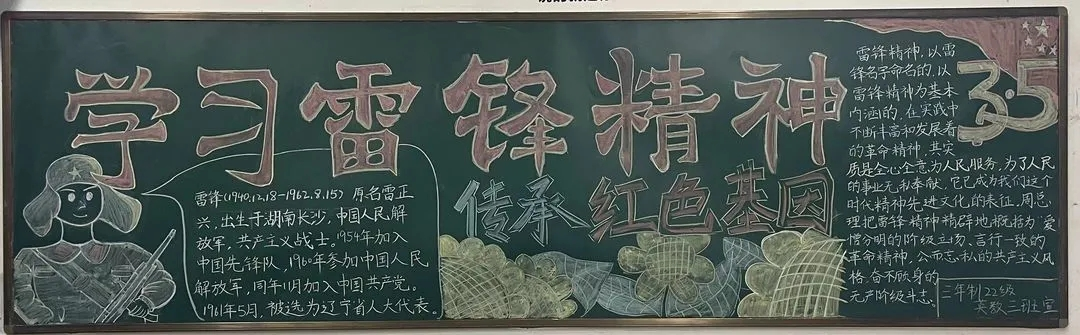 学习雷锋精神
传承红色基因
雷锋(1940.12.18-1962.8.15) 原名雷正
兴,出生于湖南长沙,中国人民解
放军,共产主义战士。1954年加入
中国先锋队,1960年参加中国人民
解放军,同年11月加入中国共产党。
1961年5月,被选为辽宁省人大代表。
雷锋精神,以雷
锋名字命名的,以
雷锋精神为基本
内涵的,在实践中
不断丰富和发展着
的革命精神,其实
质是全心全意为人民服务,为了人民
的事业无私奉献,它已成为我们这个
时代精神先进文化的表征,周总
理把雷锋精神精辟地概括为"爱
憎分明的阶级立场、言行一致的
革命精神,公而忘私的共产主义风
格,奋不顾身的
无产阶级斗志。
3·5
三年制22级
英教三班宣